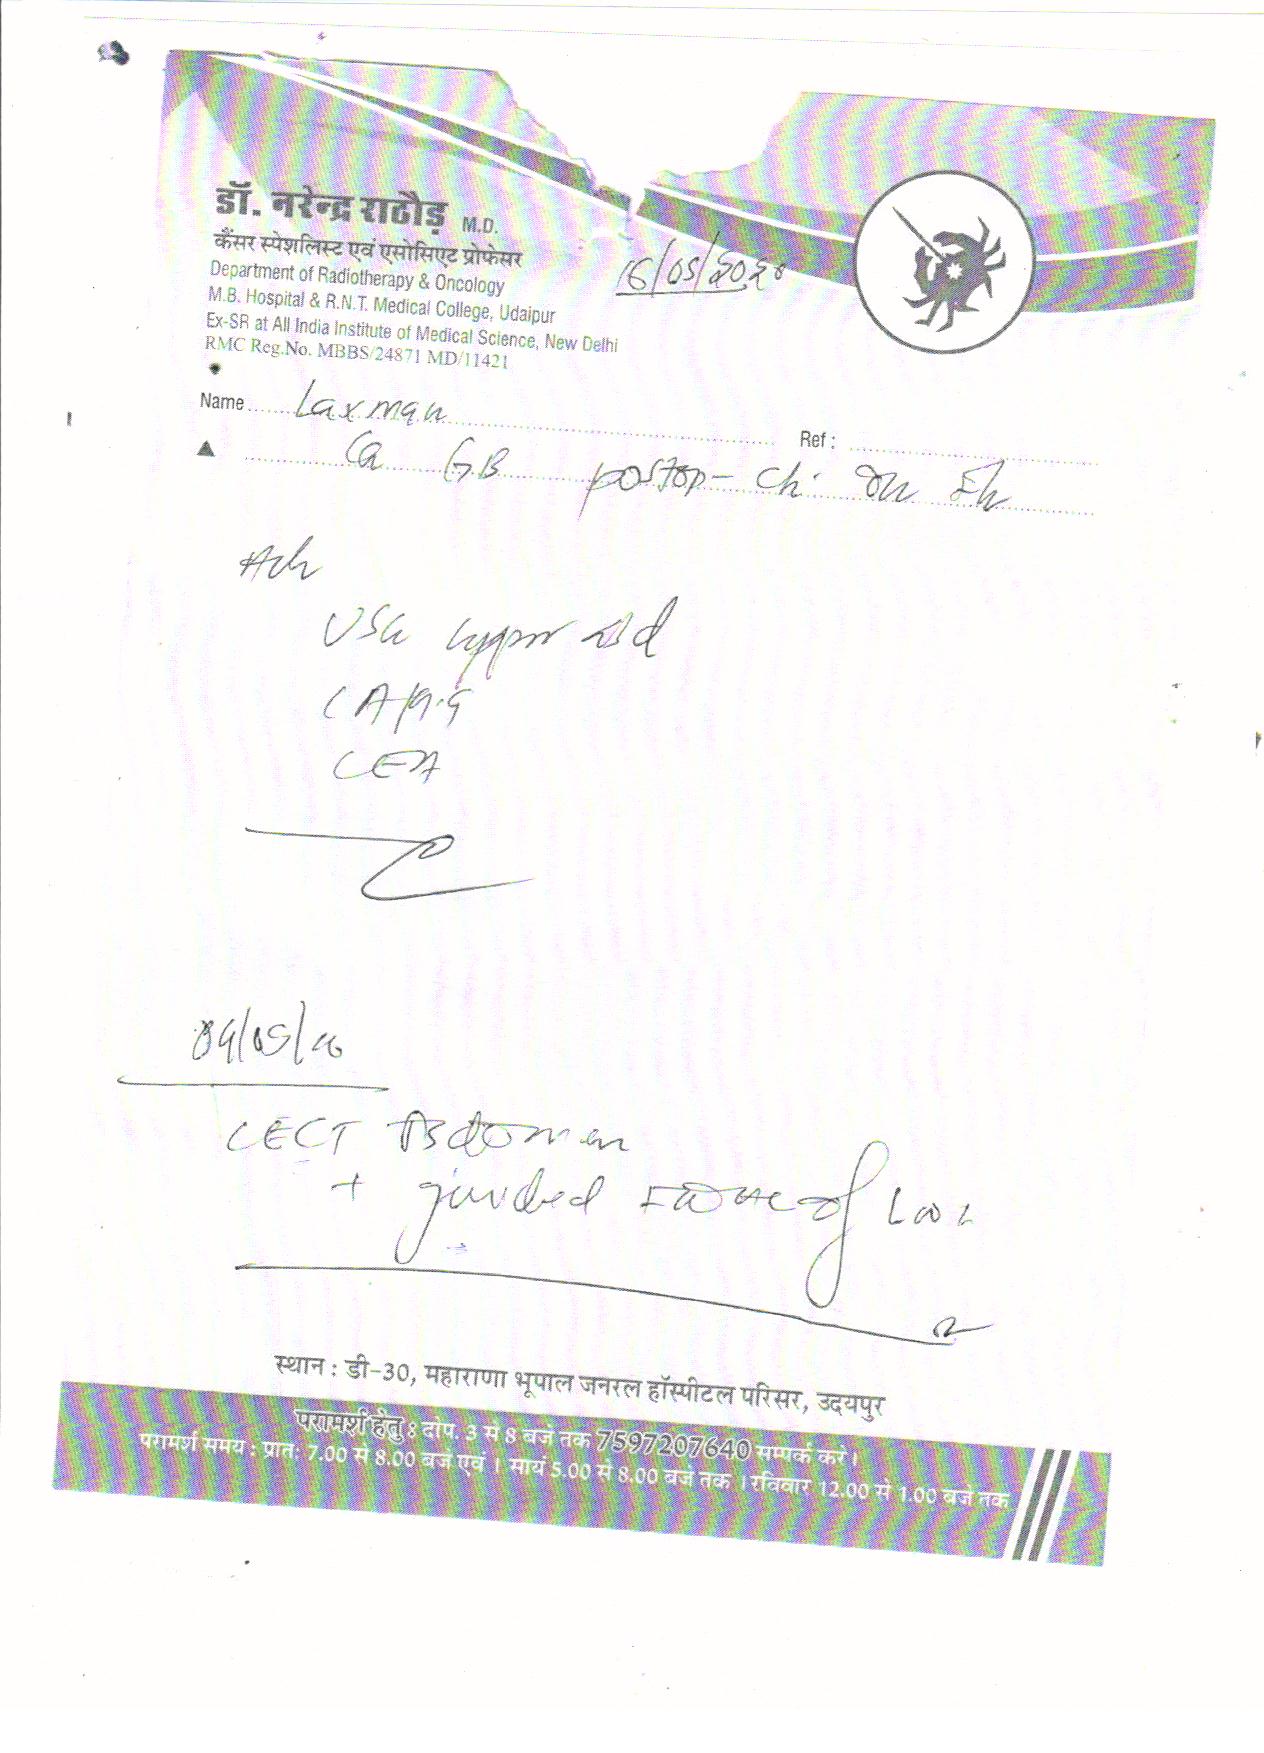 डॉ. नरेन्द्र राठौड़ M.D.
कैंसर स्पेशलिस्ट एवं एसोसिएट प्रोफेसर
Department of Radiotherapy & Oncology
M.B. Hospital & R.N.T. Medical College, Udaipur
Ex-SR at All India Institute of Medical Science, New Delhi
RMC Reg.No. MBBS/24871 MD/11421
16/05/2020
Name Laxman
Ref :
Ca GB postop - Ch.
Adv
USG upper Abd
CA19.9
CEA
CECT Abdomen
+ guided FNAC of
स्थान : डी-30, महाराणा भूपाल जनरल हॉस्पीटल परिसर, उदयपुर
परामर्श हेतु : दोप. 3 से 8 बजे तक 7597207640 सम्पर्क करे।
परामर्श समय : प्रातः 7.00 से 8.00 बजे एवं । सायं 5.00 से 8.00 बजे तक । रविवार 12.00 से 1.00 बजे तक